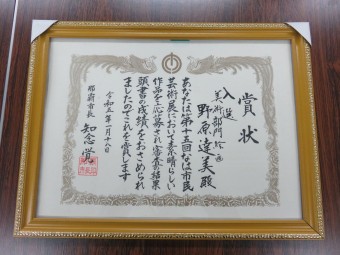 賞状
入選
美術部門絵画
野原達美殿
あなたは第十五回なは市民
芸術展において素晴らしい
作品を応募され審査の結果
頭書の成績をおさめられ
ましたのでこれを賞します
令和五年二月十八日
那覇市長 知念覚